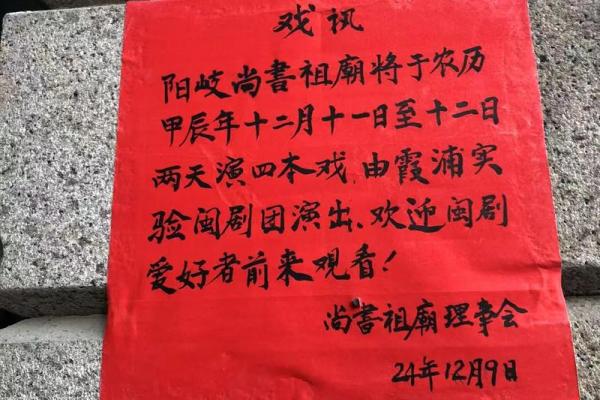 戏讯
阳岐尚書祖廟将于农历
甲辰年十二月十一日至十二日
两天演四本戏,由霞浦实
验闽剧团演出、欢迎闽剧
爱好者前来观看!
尚書祖廟理事会
24年12月9日